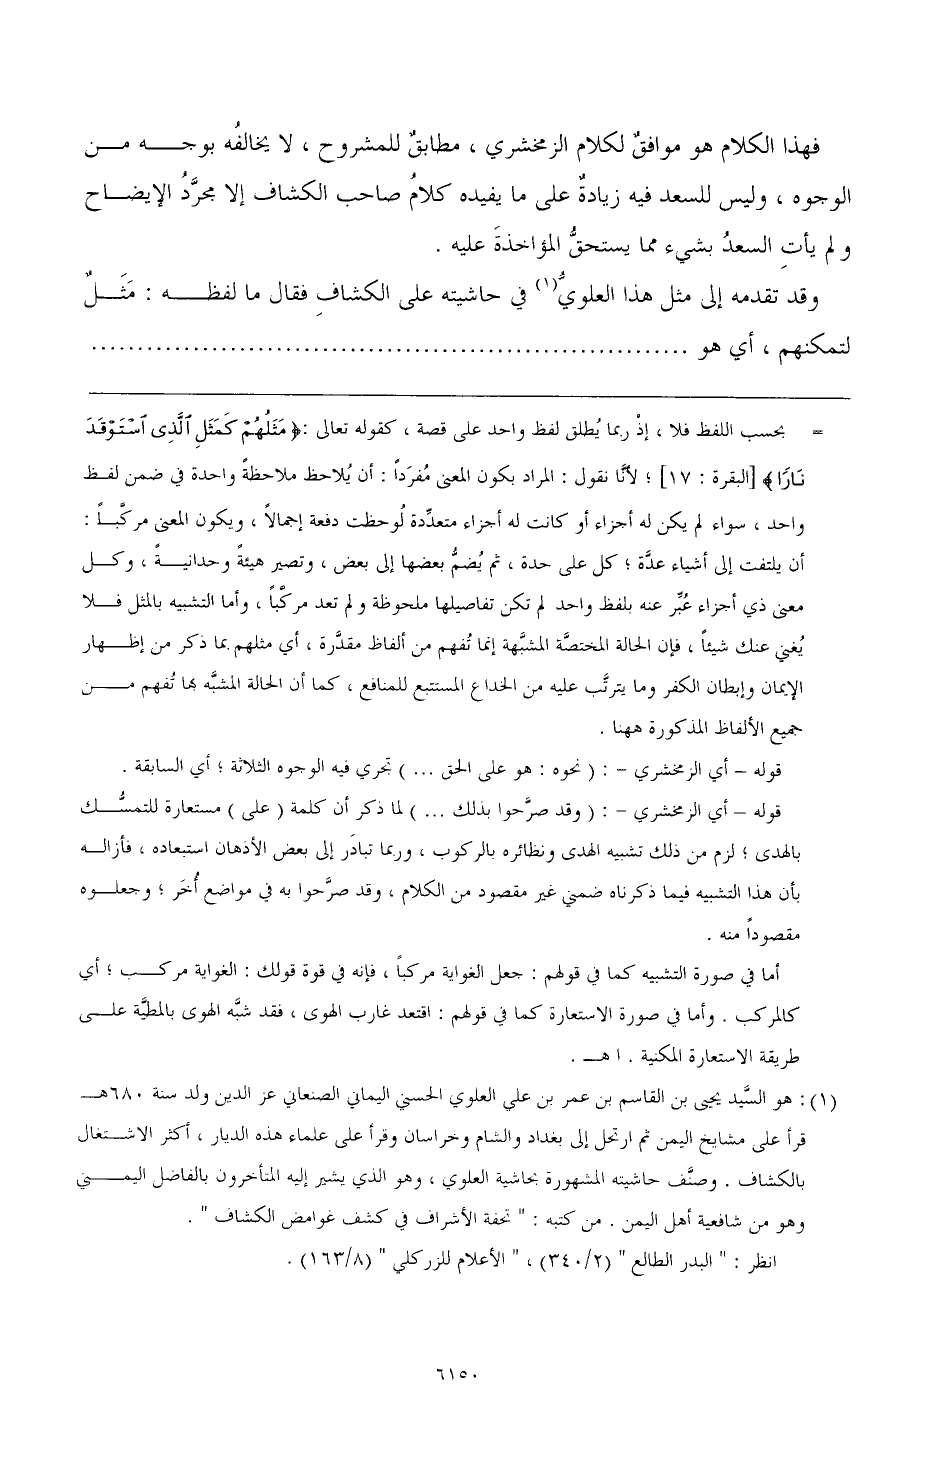 فهذا الكلام هو موافقٌ لكلام الزمخشري ، مطابقٌ للمشروح ، لا يخالفُه بوجـــه مــن
الوجوه ، وليس للسعد فيه زيادةٌ على ما يفيده كلامُ صاحب الكشاف إلا مجرَّدُ الإيضـاح
و لم يأتِ السعدُ بشيء مما يستحقُّ المؤاخذةَ عليه .
وقد تقدمه إلى مثل هذا العلويُّ(١) في حاشيته على الكشافِ فقال ما لفظـــه : مَثَـــلٌ
لتمكنهم ، أي هو ................................................................
= بحسب اللفظ فلا ، إذْ ربما يُطلق لفظ واحد على قصة ، كقوله تعالى :﴿ مَثَلُهُمْ كَمَثَلِ ٱلَّذِى ٱسْتَوْقَدَ
نَارًا ﴾ [البقرة : ١٧] ؛ لأنَّا نقول : المراد بكون المعنى مُفرَداً : أن يُلاحظ ملاحظةً واحدة في ضمن لفـظ
واحد ، سواء لم يكن له أجزاء أو كانت له أجزاء متعدِّدة لُوحظت دفعة إجمالاً ، ويكون المعنى مركَّبـاً :
أن يلتفت إلى أشياء عدَّة ؛ كل على حدة ، ثم يُضمُّ بعضها إلى بعض ، وتصير هيئةً وحدانيـــةً ، وكـــل
معنى ذي أجزاء عُبِّر عنه بلفظ واحد لم تكن تفاصيلها ملحوظة و لم تعد مركَّباً ، وأما التشبيه بالمثل فـــلا
يُغني عنك شيئاً ، فإن الحالة المختصَّة المشبَّهة إنما تُفهم من ألفاظ مقدَّرة ، أي مثلهم بما ذكر من إظـــهار
الإيمان وإبطان الكفر وما يترتَّب عليه من الخداع المستتبع للمنافع ، كما أن الحالة المشبَّه بها تُفهم مـــن
جميع الألفاظ المذكورة ههنا .
قوله – أي الزمخشري – : ( نحوه : هو على الحق ... ) تجري فيه الوجوه الثلاثة ؛ أي السابقة .
قوله – أي الزمخشري – : ( وقد صرَّحوا بذلك ... ) لما ذكر أن كلمة ( على ) مستعارة للتمسُّـــك
بالهدى ؛ لزم من ذلك تشبيه الهدى ونظائره بالركوب ، وربما تبادَر إلى بعض الأذهان استبعاده ، فأزالـــه
بأن هذا التشبيه فيما ذكرناه ضمني غير مقصود من الكلام ، وقد صرَّحوا به في مواضع أُخَر ؛ وجعلــوه
مقصوداً منه .
أما في صورة التشبيه كما في قولهم : جعل الغواية مركباً ، فإنه في قوة قولك : الغواية مركـــب ؛ أي
كالمركب . وأما في صورة الاستعارة كما في قولهم : اقتعد غارب الهوى ، فقد شبَّه الهوى بالمطيَّة علـــى
طريقة الاستعارة المكنية . ا هـــ .
(١) : هو السَّيد يحيى بن القاسم بن عمر بن علي العلوي الحسني اليماني الصنعاني عز الدين ولد سنة ٦٨٠هـــ
قرأ على مشايخ اليمن ثم ارتحل إلى بغداد والشام وخراسان وقرأ على علماء هذه الديار ، أكثر الاشـــتغال
بالكشاف . وصنَّف حاشيته المشهورة بحاشية العلوي ، وهو الذي يشير إليه المتأخرون بالفاضل اليمـــني
وهو من شافعية أهل اليمن . من كتبه : " تحفة الأشراف في كشف غوامض الكشاف " .
انظر : " البدر الطالع " (٣٤٠/٢) ، " الأعلام للزركلي " (١٦٣/٨) .
٦١٥٠